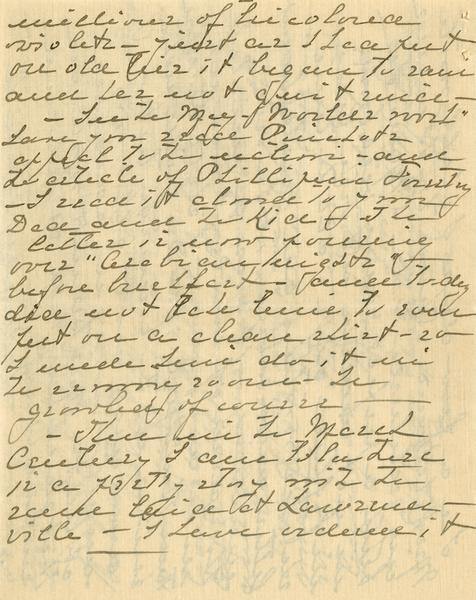 millions of tricolored
violets — just as I had put
on old tires it began to rain
and has not quit since —
— In the May "World's Work"
have you read Pinchots
appeal to the nation — and
the article of Phillipine Forestry
— I read it aloud to your
Dad and the Kid — The
latter is now pouring
over "Arabian nights"
before breakfast — and today
did not take time to even
put on a clean shirt — so
I made him do it in
the morning room — he
growled of course —
— Then in the March
Century I am told there
is a pretty story with the
scene laid at Lawrence-
ville — I have ordered it